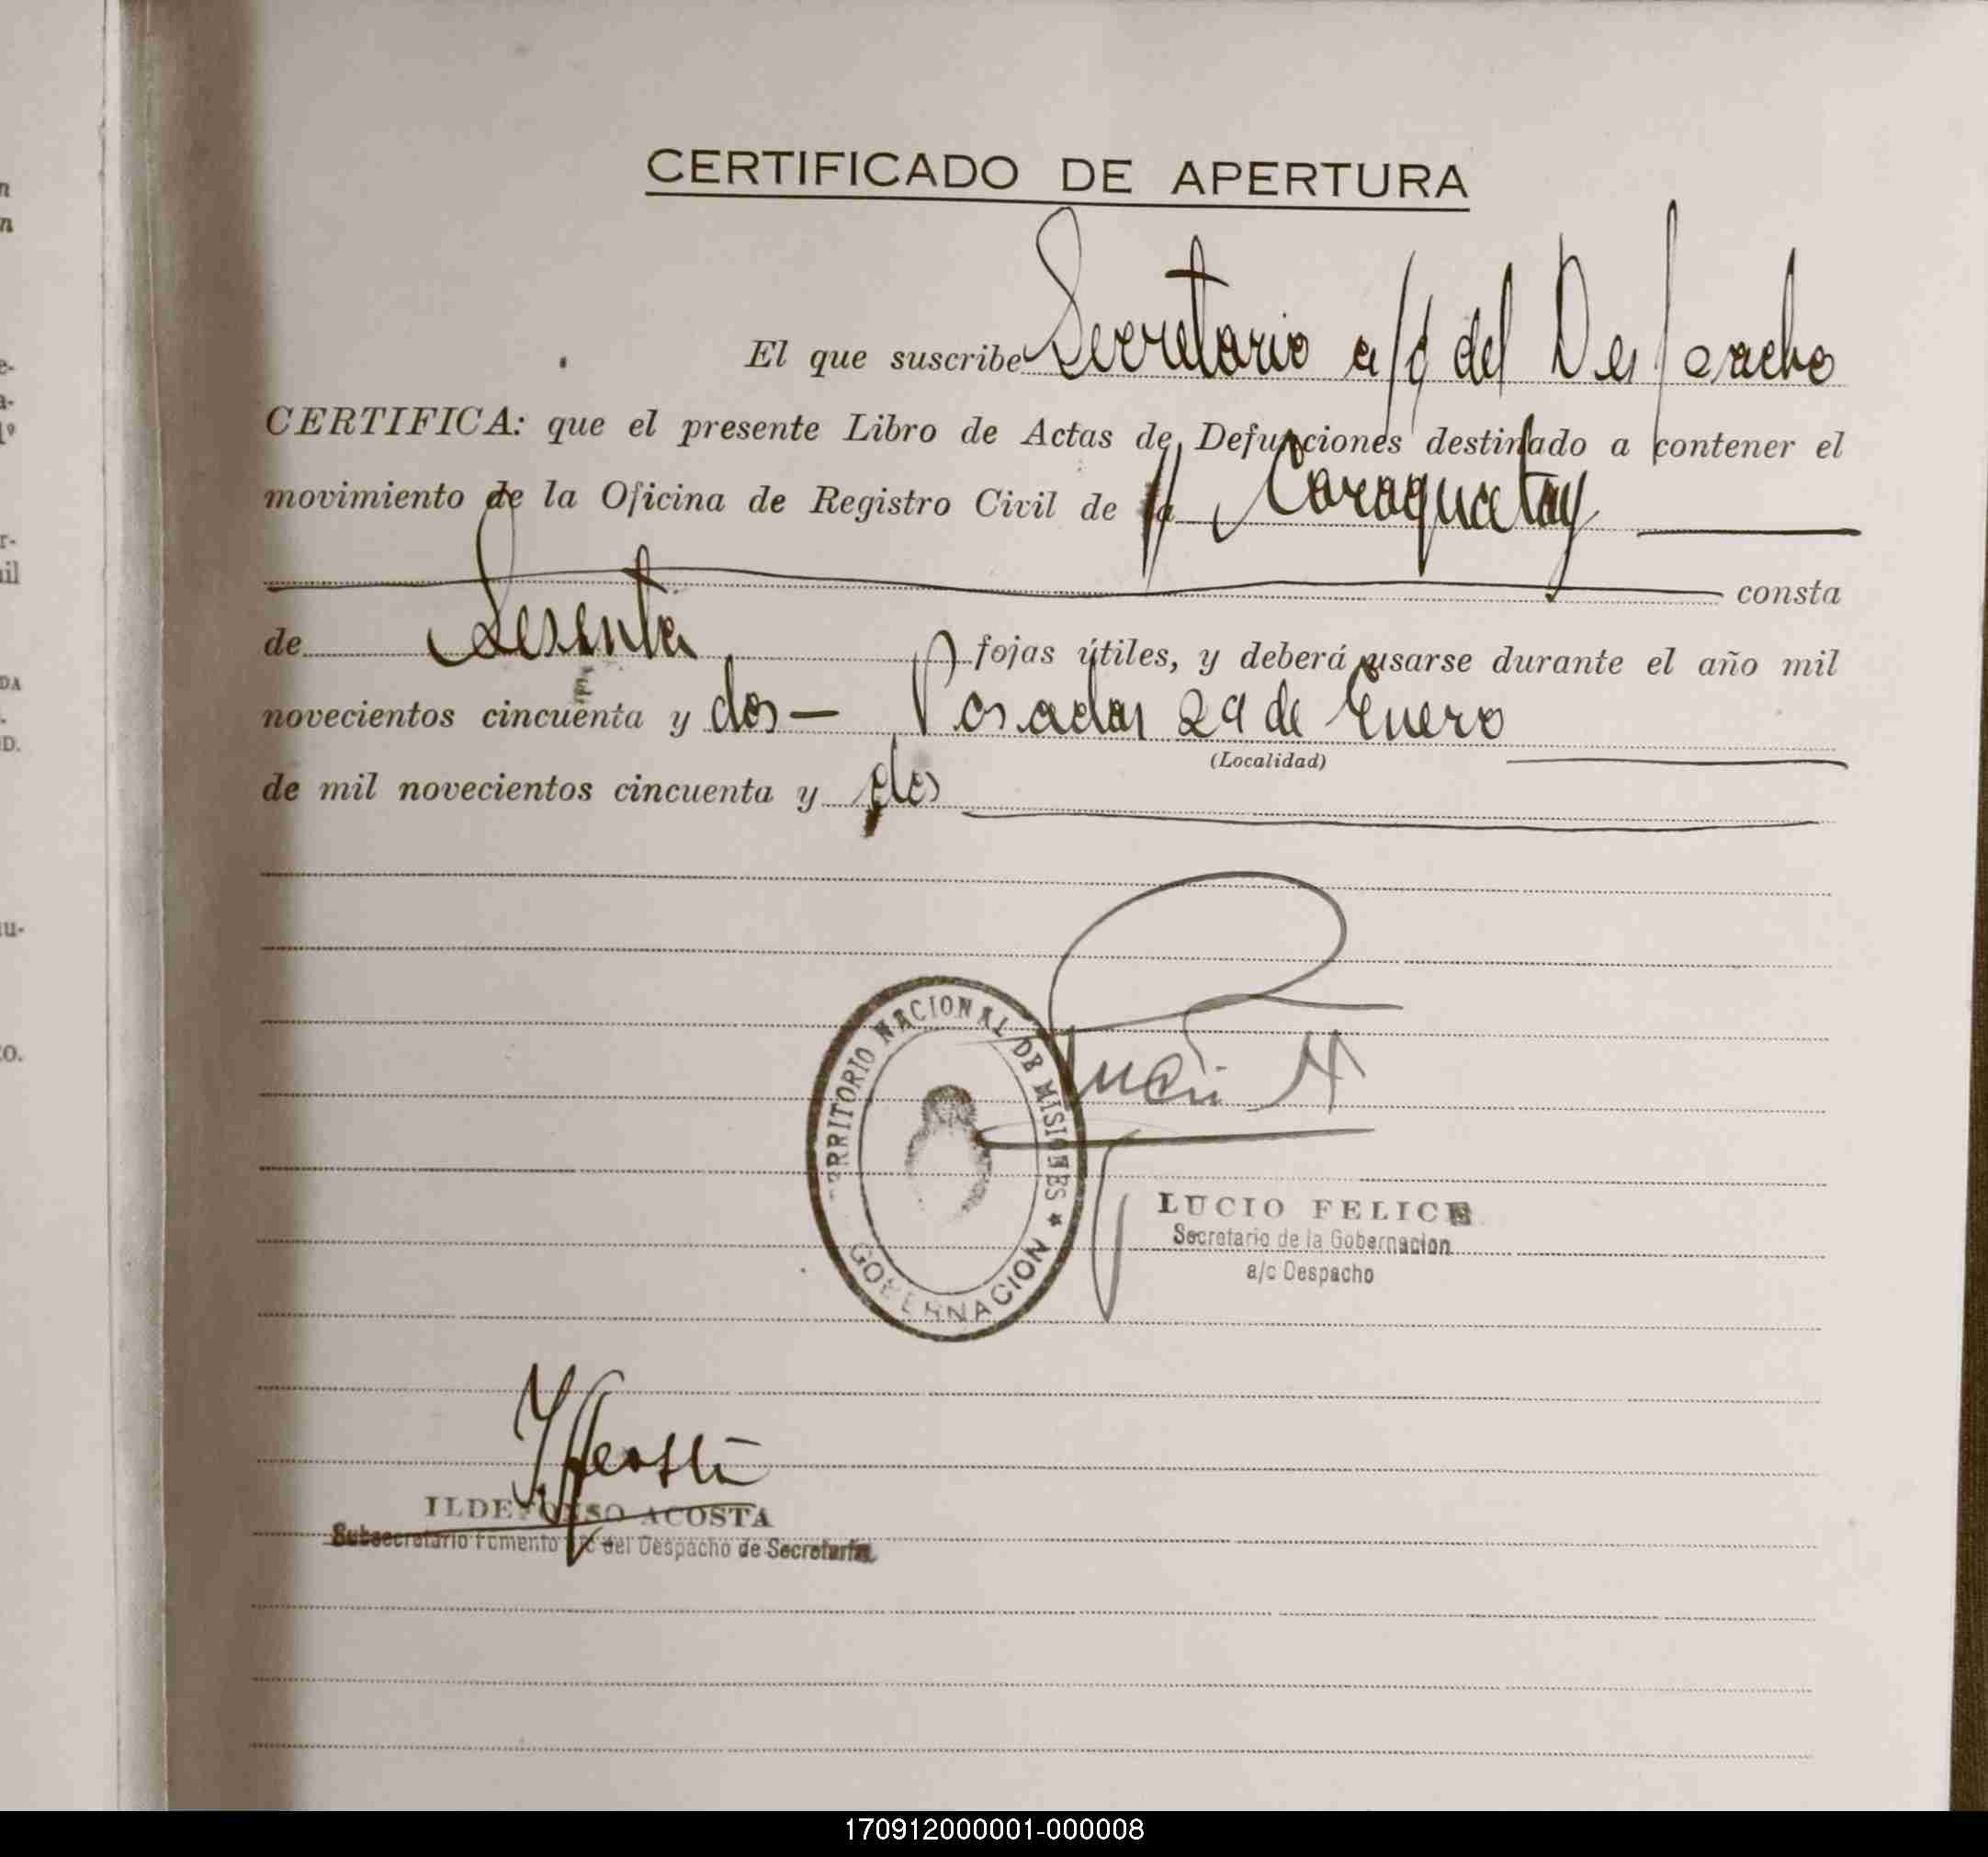 CERTIFICADO DE APERTURA
El que suscribe Secretario a/c del Despacho
CERTIFICA: que el presente Libro de Actas de Defunciones destinado a contener el
movimiento de la Oficina de Registro Civil de Caraguatay
consta
de Sesenta fojas útiles, y deberá usarse durante el año mil
novecientos cincuenta y dos — Posadas 29 de Enero
(Localidad)
de mil novecientos cincuenta y dos
TERRITORIO NACIONAL DE MISIONES ★
GOBERNACION
LUCIO FELICE
Secretario de la Gobernacion
a/c Despacho
ILDEFONSO ACOSTA
Subsecretario Fomento a/c del Despacho de Secretaría
170912000001-000008